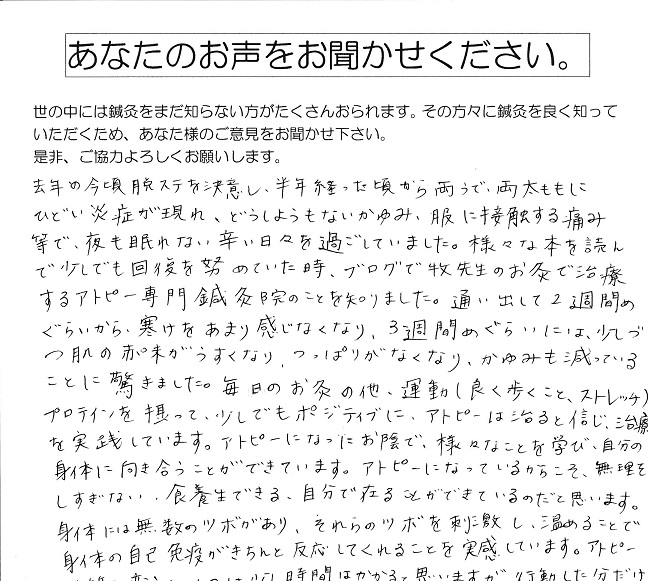 あなたのお声をお聞かせください。
世の中には鍼灸をまだ知らない方がたくさんおられます。その方々に鍼灸を良く知って
いただくため、あなた様のご意見をお聞かせ下さい。
是非、ご協力よろしくお願いします。
去年の今頃脱ステを決意し、半年経った頃から両うで、両太ももに
ひどい炎症が現れ、どうしようもないかゆみ、服に接触する痛み
等で、夜も眠れない辛い日々を過ごしていました。様々な本を読ん
で少しでも回復を努めていた時、ブログで牧先生のお灸で治療
するアトピー専門鍼灸院のことを知りました。通い出して2週間め
ぐらいから、寒けをあまり感じなくなり、3週間めぐらいには、少しづ
つ肌の赤味がうすくなり、つっぱりがなくなり、かゆみも減っている
ことに驚きました。毎日のお灸の他、運動(良く歩くこと、ストレッチ)
プロテインを摂って、少しでもポジティブに、アトピーは治ると信じ、治療
を実践しています。アトピーになったお陰で、様々なことを学び、自分の
身体に向き合うことができています。アトピーになっているからこそ、無理を
しすぎない、食養生できる、自分で在ることができているのだと思います。
身体には無数のツボがあり、それらのツボを刺激し、温めることで
身体の自己免疫がきちんと反応してくれることを実感しています。アトピー
時間はかかると思いますが、行動した分だけ